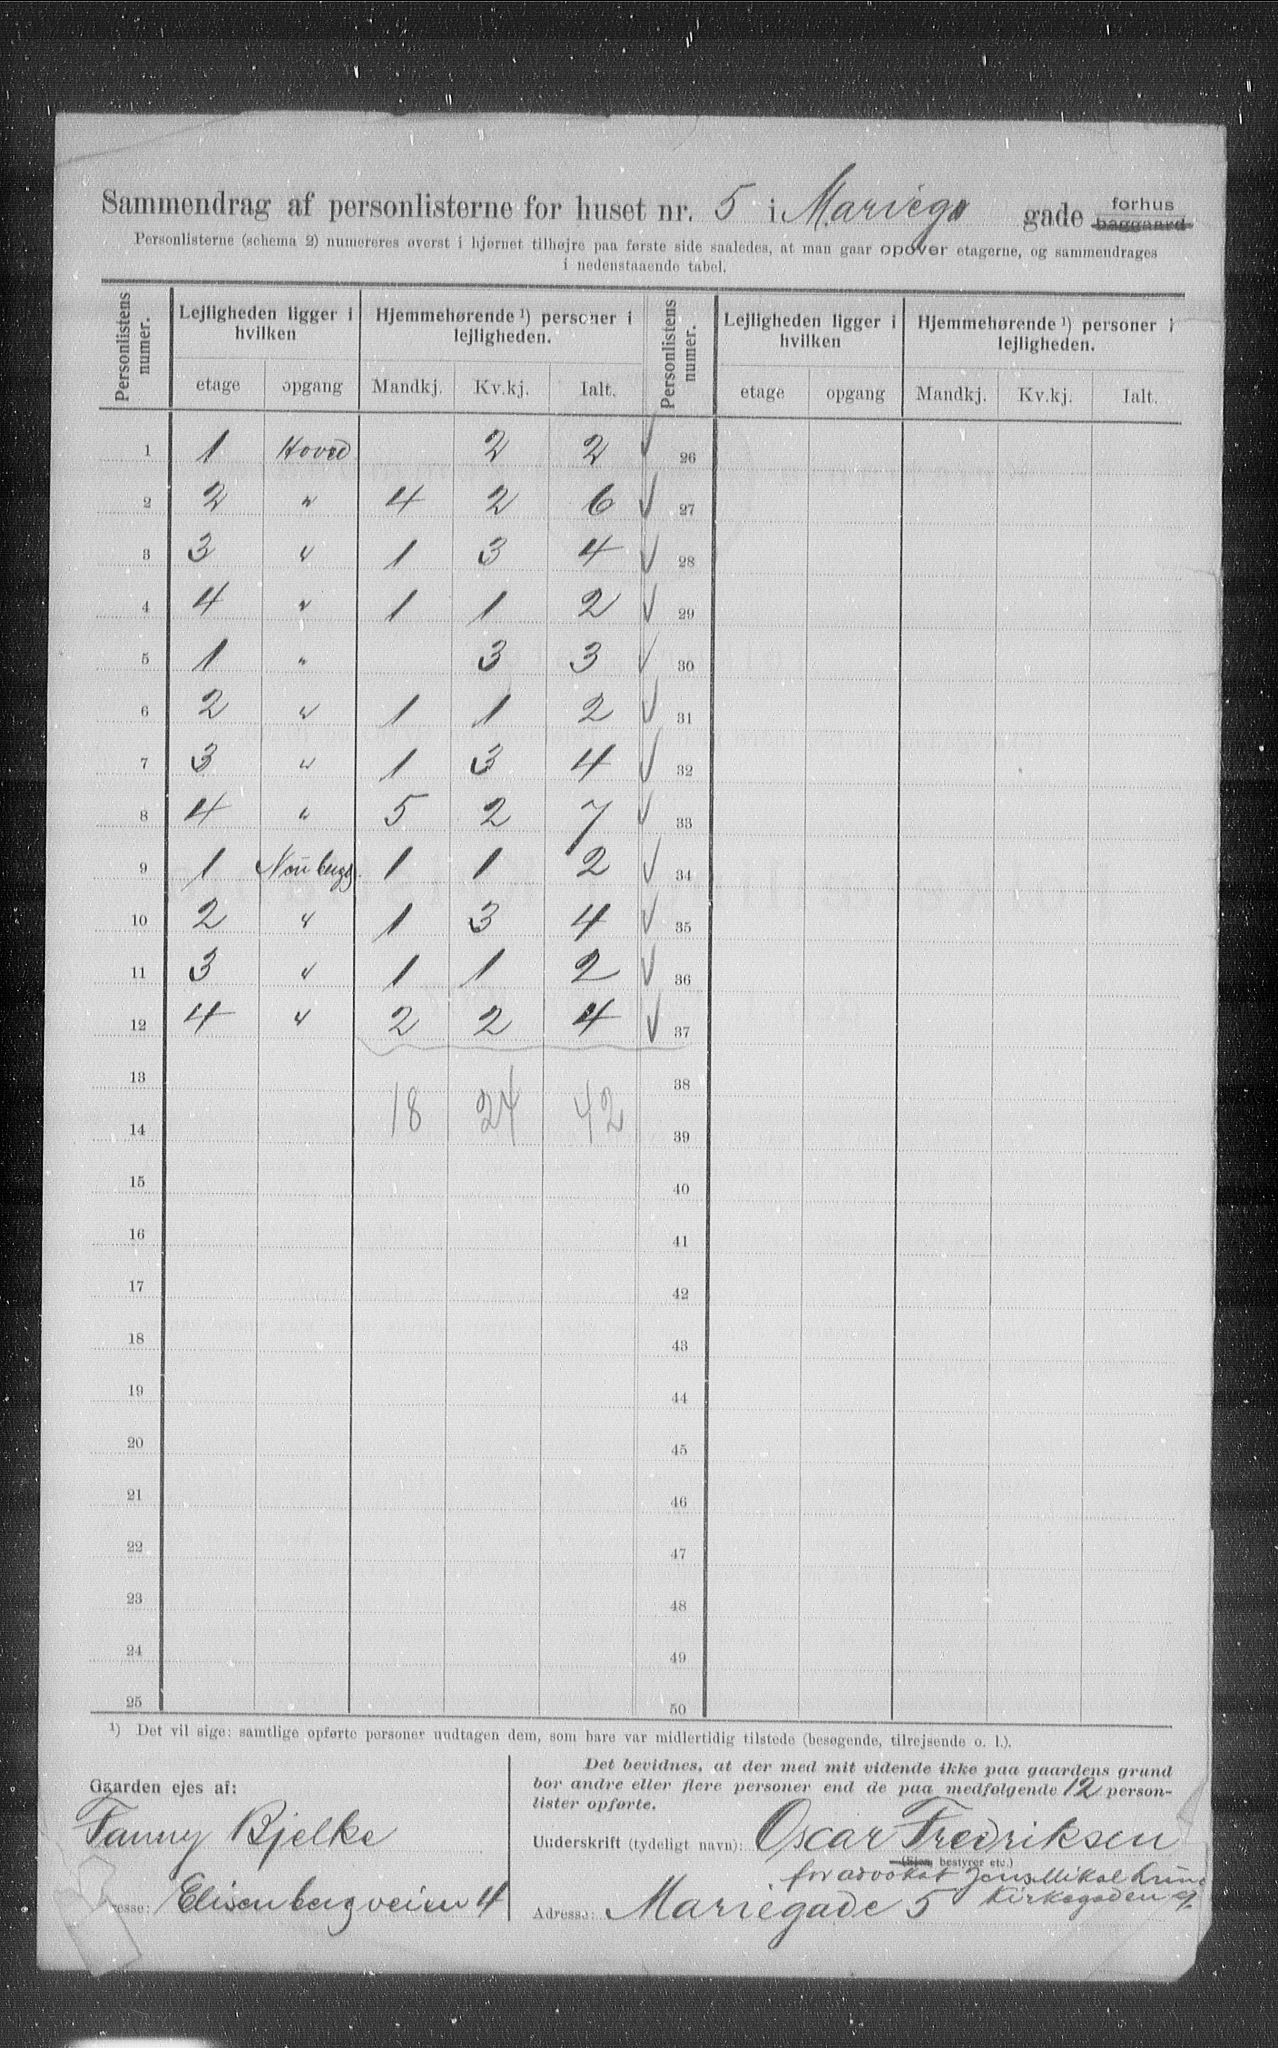 Sammendrag af personlisterne for huset nr. 5 i Mariega gade forhus baggaard
Personlisterne (schema 2) numereres øverst i hjørnet tilhøjre paa første side saaledes, at man gaar opover etagerne, og sammendrages
i nedenstaaende tabel.
Personlistens numer. Lejligheden ligger i hvilken Hjemmehørende ¹) personer i lejligheden. Personlistens numer. Lejligheden ligger i hvilken Hjemmehørende ¹) personer i lejligheden.
etage opgang Mandkj. Kv.kj. Ialt. etage opgang Mandkj. Kv.kj. Ialt.
1 1 Hoved 2 2 ✓ 26
2 2 " 4 2 6 ✓ 27
3 3 " 1 3 4 ✓ 28
4 4 " 1 1 2 ✓ 29
5 1 " 3 3 ✓ 30
6 2 " 1 1 2 ✓ 31
7 3 " 1 3 4 ✓ 32
8 4 " 5 2 7 ✓ 33
9 1 1 1 2 ✓ 34
10 2 " 1 3 4 ✓ 35
11 3 " 1 1 2 ✓ 36
12 4 " 2 2 4 ✓ 37
13 38
14 18 24 42 39
15 40
16 41
17 42
18 43
19 44
20 45
21 46
22 47
23 48
24 49
25 50
¹) Det vil sige: samtlige opførte personer undtagen dem, som bare var midlertidig tilstede (besøgende, tilrejsende o. l.).
Ggaarden ejes af:
Fanny Bjelke
esse: Elisenbergveien 4
Det bevidnes, at der med mit vidende ikke paa gaardens grund
bor andre eller flere personer end de paa medfølgende 12 person-
lister opførte.
Underskrift (tydeligt navn): Oscar Fredriksen
(Ejer, bestyrer etc.)
for advokat Jens Mikal Lund
Kirkegaden 9
Adresse: Mariegade 5